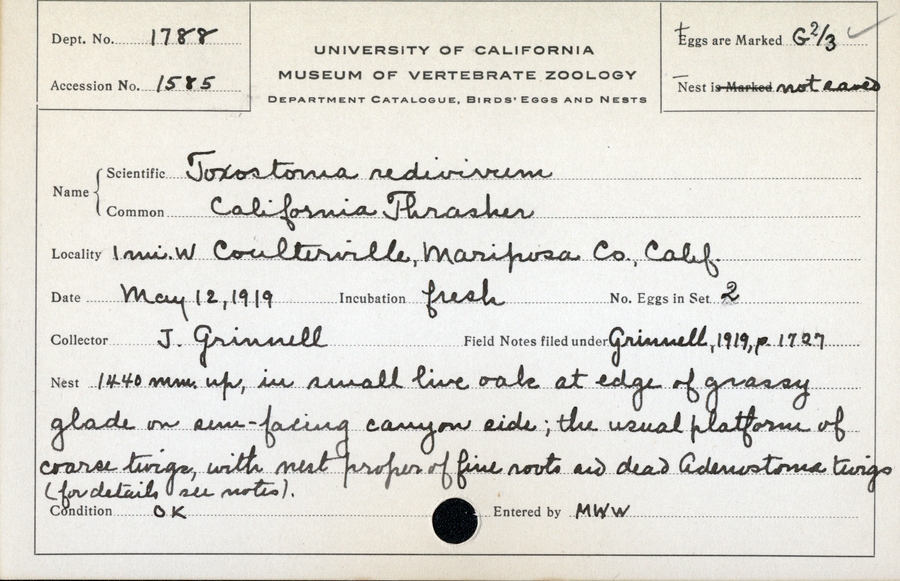 Dept. No. 1788
Accession No. 1585
UNIVERSITY OF CALIFORNIA
MUSEUM OF VERTEBRATE ZOOLOGY
DEPARTMENT CATALOGUE, BIRDS' EGGS AND NESTS
Eggs are Marked G2/3 ✓
Nest is Marked not saved
Name
Scientific Toxostoma redivivum
Common California Thrasher
Locality 1 mi. W Coulterville, Mariposa Co., Calif.
Date May 12, 1919 Incubation fresh No. Eggs in Set 2
Collector J. Grinnell Field Notes filed under Grinnell, 1919, p. 1727
Nest 1440 mm. up, in small live oak at edge of grassy
glade on sun-facing canyon side; the usual platform of
coarse twigs, with nest proper of fine roots and dead Adenostoma twigs
(for details see notes).
Condition OK Entered by MWW